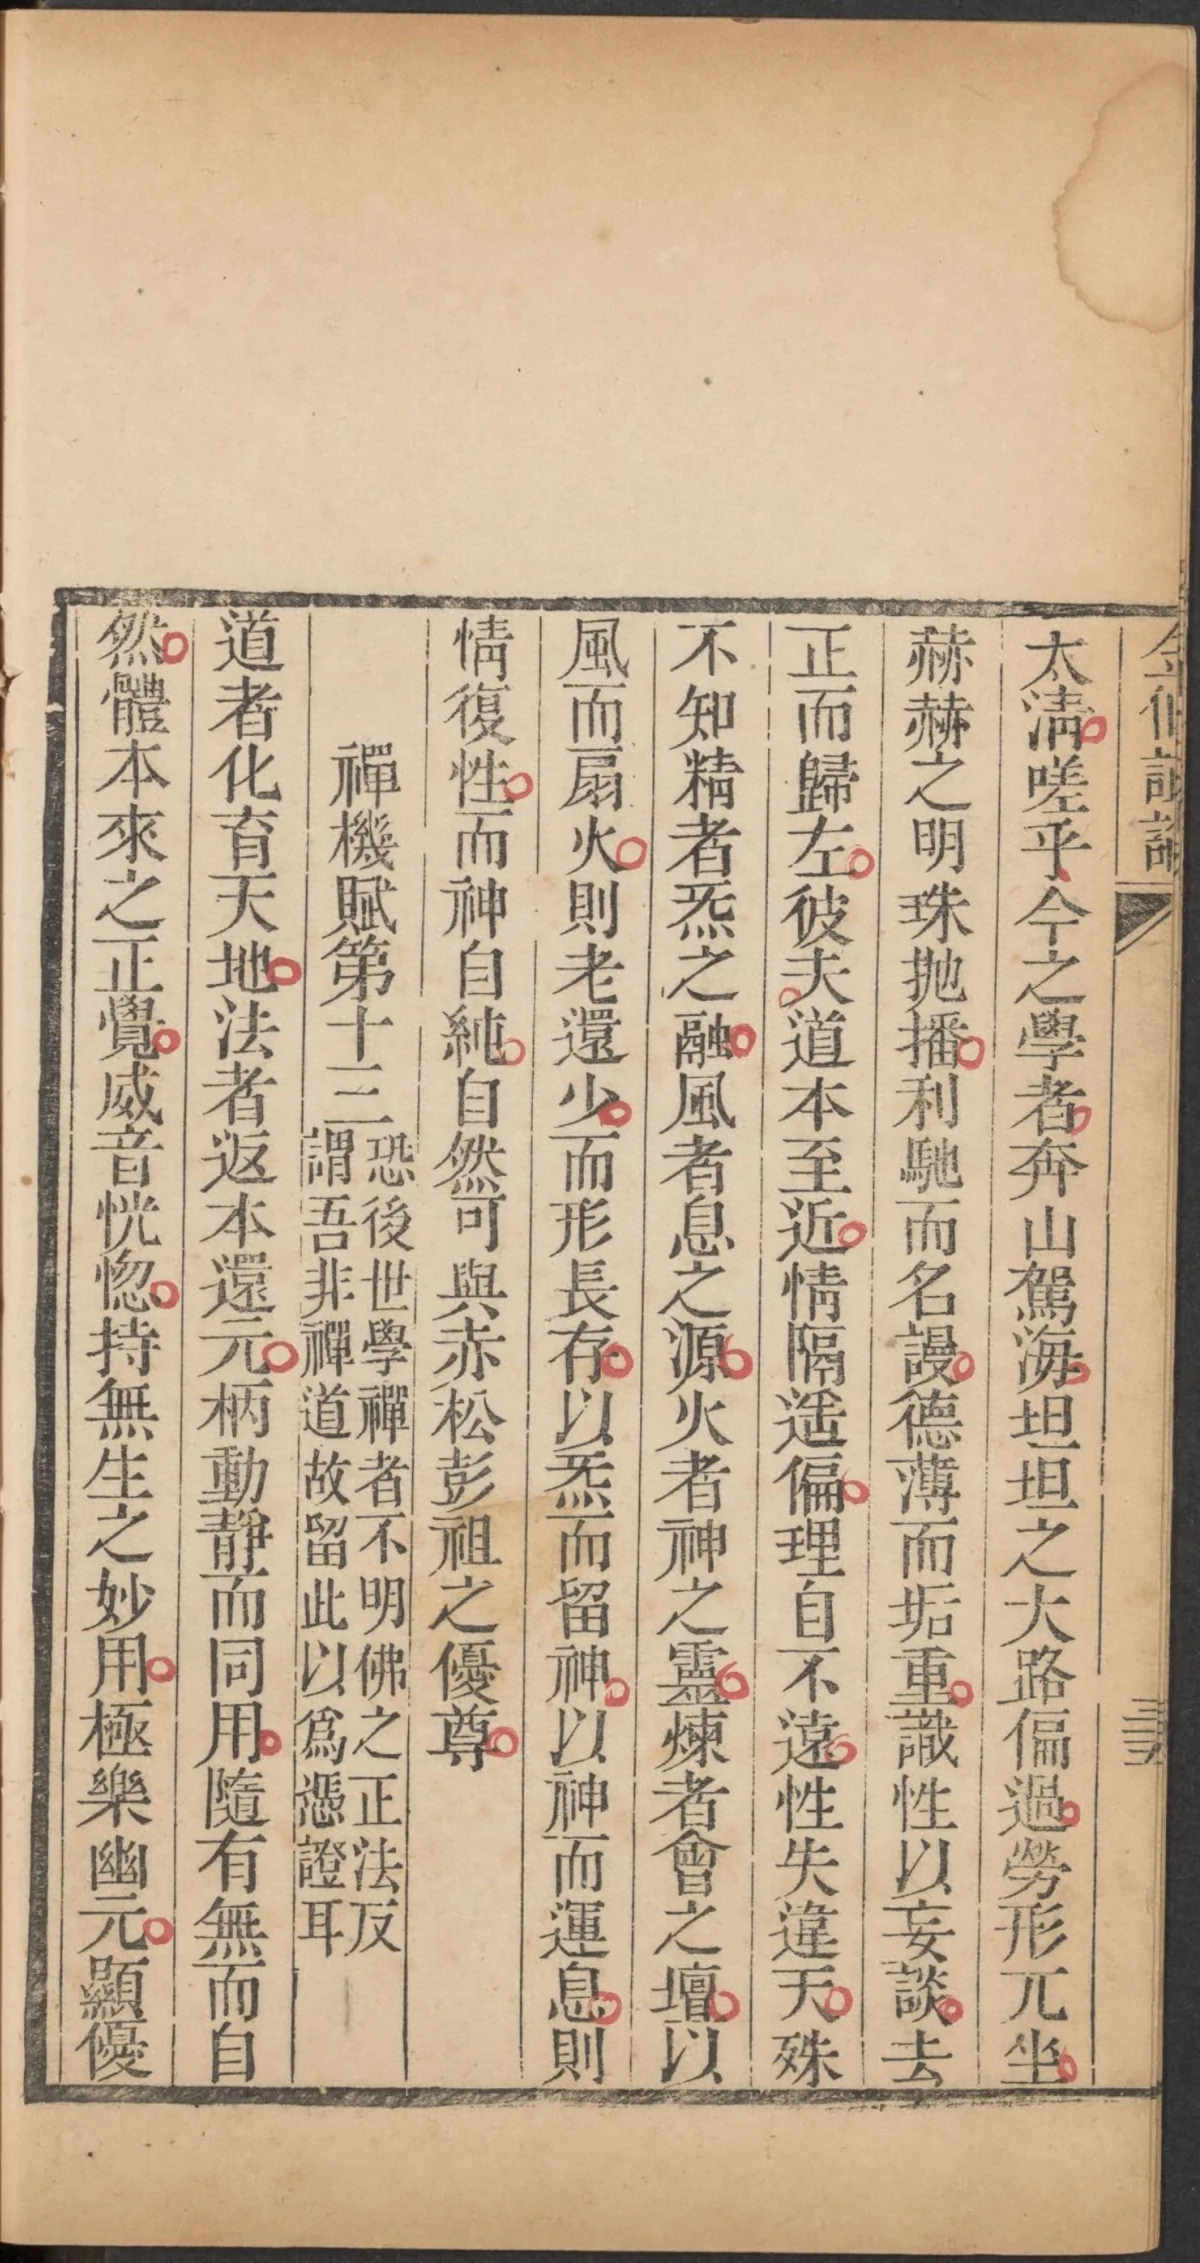 金仙證論
三五
太淸嗟乎今之學者奔山駕海坦坦之大路偏過勞形兀坐
赫赫之明珠抛播利馳而名謾德薄而垢重識性以妄談去
正而歸左彼夫道本至近情隔遥偏理自不遠性失違天殊
不知精者炁之融風者息之源火者神之靈煉者會之壇以
風而扇火則老還少而形長存以炁而留神以神而運息則
情復性而神自純自然可與赤松彭祖之優尊
禪機賦第十三
恐後世學禪者不明佛之正法反
謂吾非禪道故留此以爲憑證耳
道者化育天地法者返本還元柄動靜而同用隨有無而自
然體本來之正覺威音恍惚持無生之妙用極樂幽元顯優